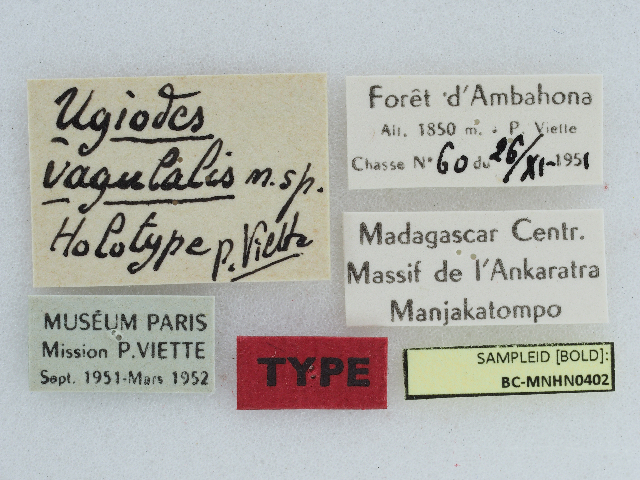 Ugiodes
vagulalis n. sp.
Holotype P. Viette
Forêt d'Ambahona
Alt. 1850 m. - P. Viette
Chasse N° 60 du 26/XI-1951
Madagascar Centr.
Massif de l'Ankaratra
Manjakatompo
MUSÉUM PARIS
Mission P.VIETTE
Sept. 1951-Mars 1952
TYPE
SAMPLEID [BOLD]:
BC-MNHN0402